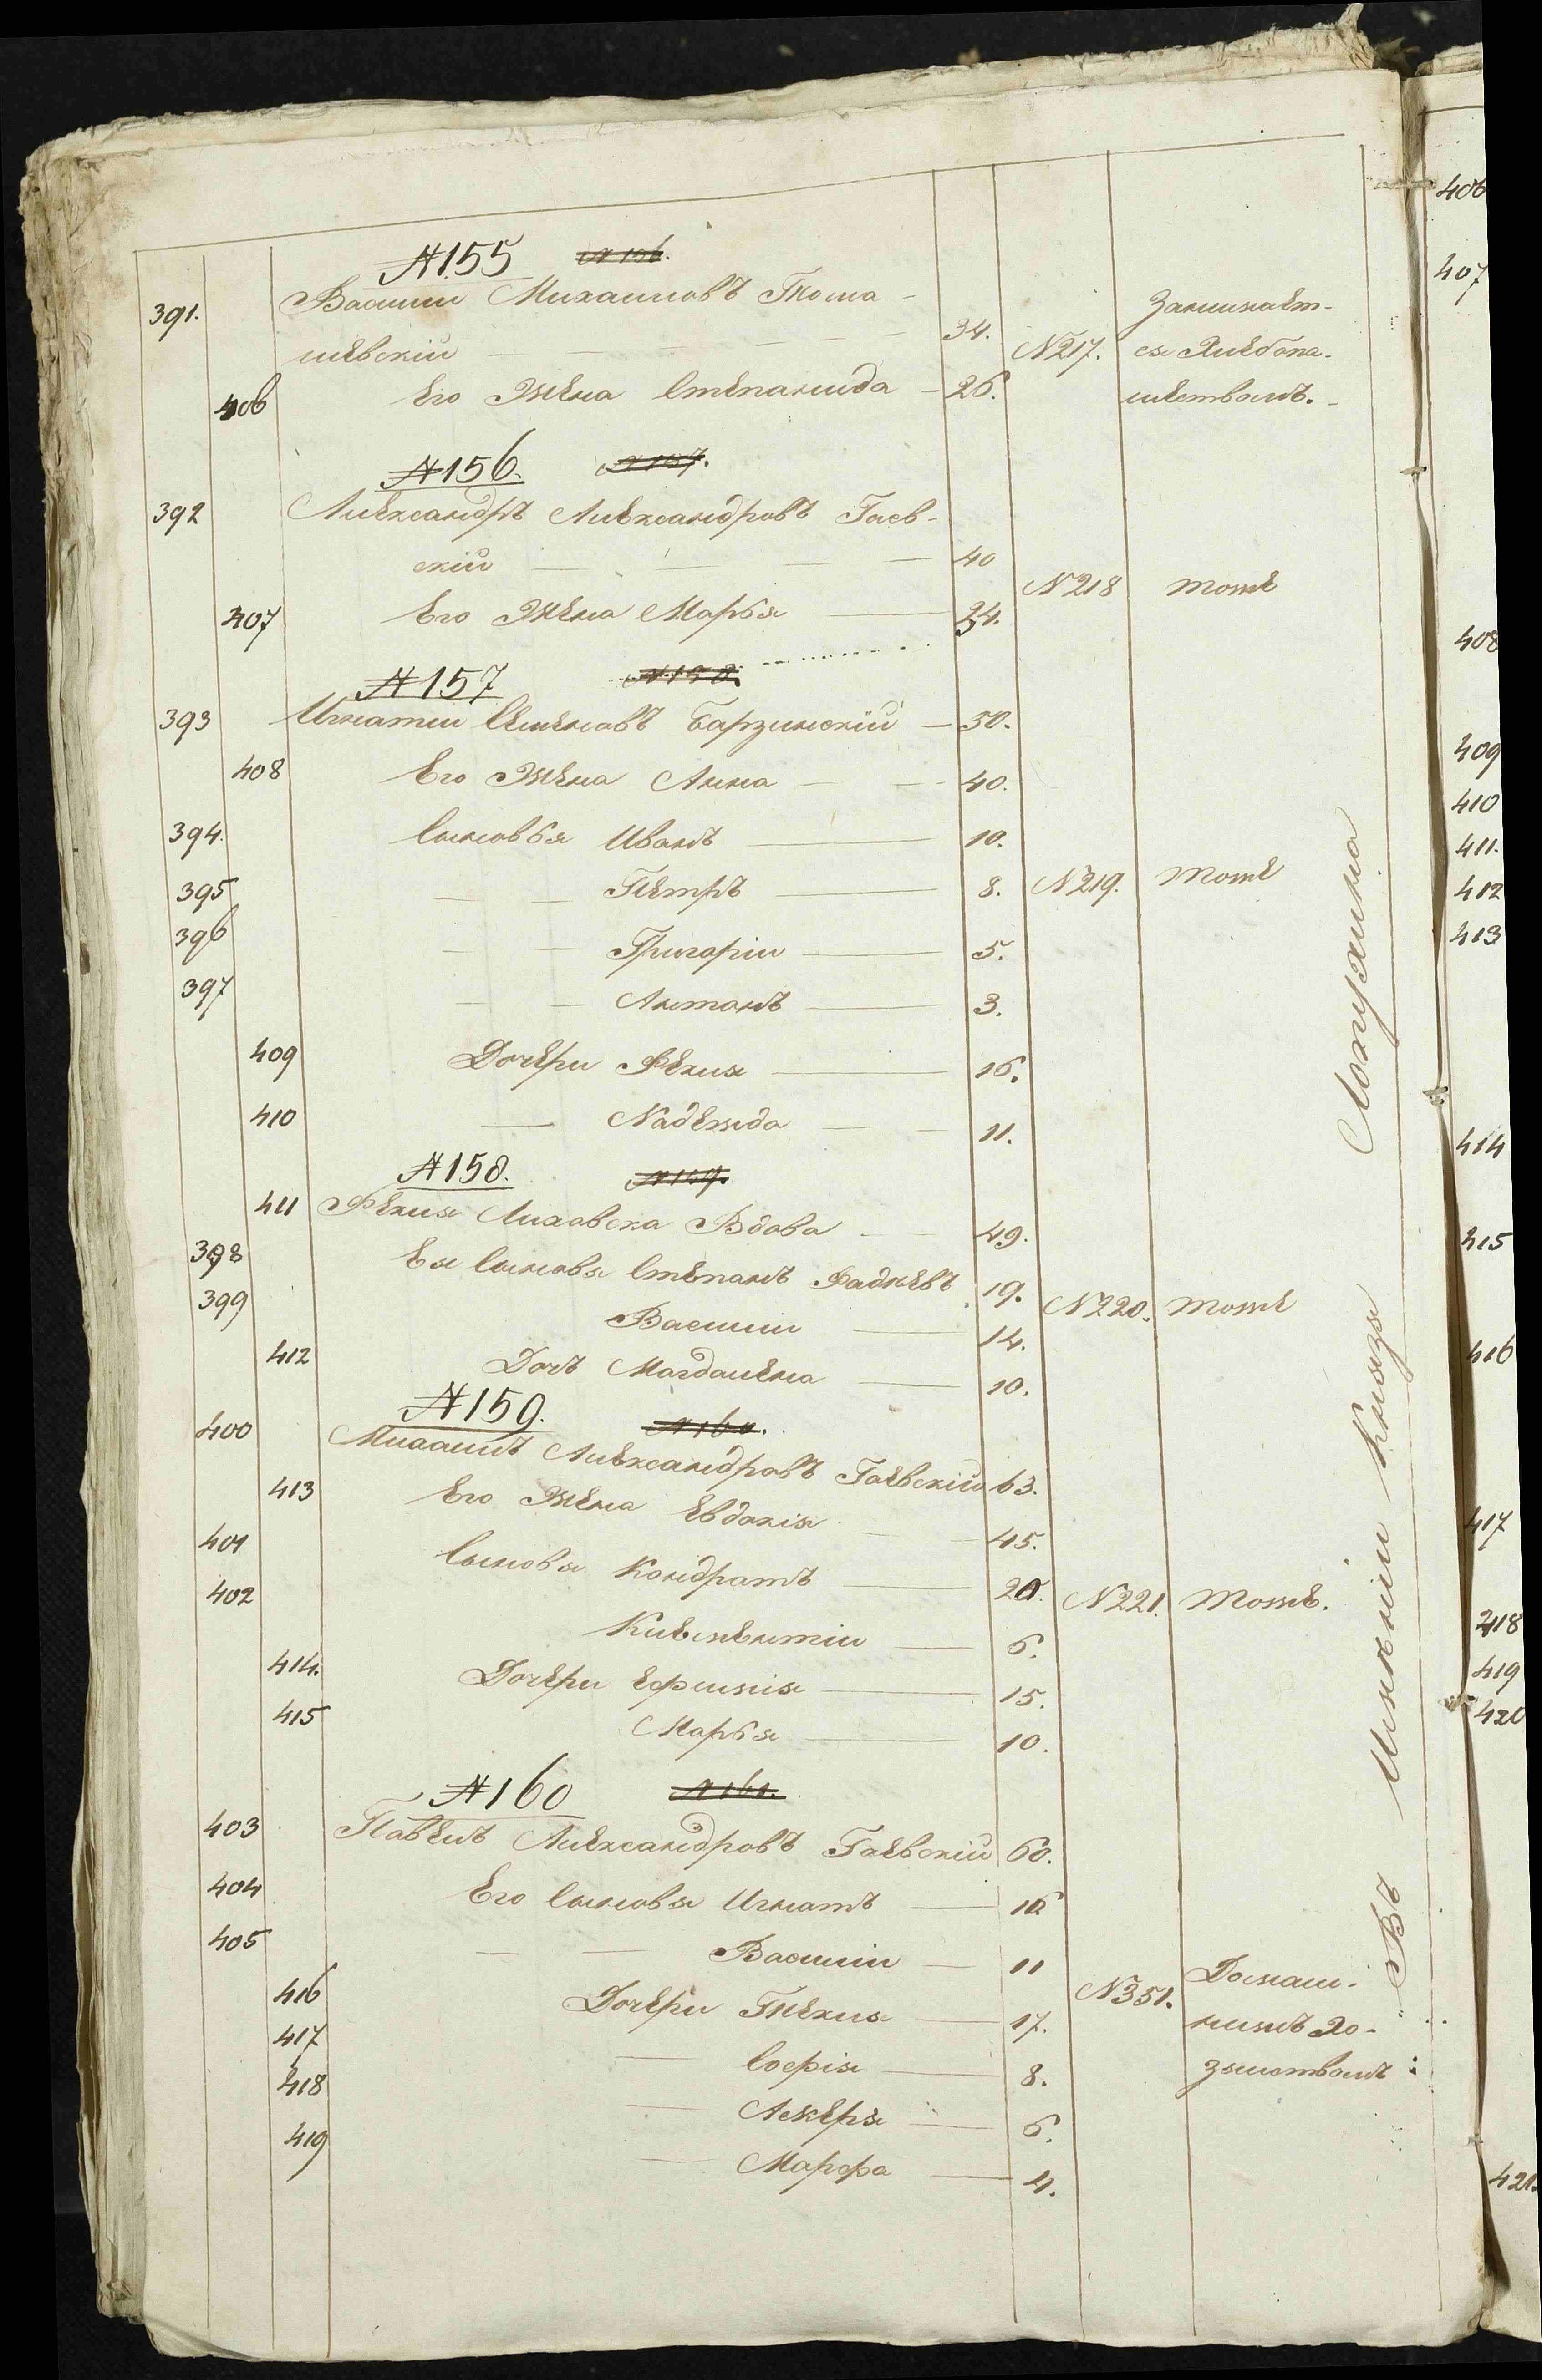 № 155
391. Василий Михайловъ Тома-
шевскій 34. №217. Занимает-
ся Хлебопа-
406 Его Жена Степанида 26. шествомъ.
№ 156.
392 Александръ Александровъ Гаев-
скій 40 №218 тоже
407 Его Жена Марья 34.
№ 157
393 Игнатии Семеновъ Барзинскій 50.
408 Его Жена Анна 40.
394. Сыновья Иванъ 10.
395 Петръ 8. №219. тоже
396 Григоріи 5.
397 Антонъ 3.
409 Дочери Фекла 16.
410 Надежда 11.
№ 158.
411 Фекла Лиховска Вдова 49.
398 Ея Сыновя Степанъ Фадѣевъ 19. №220. тоже
399 Василии 14.
412 Дочъ Магдалена 10.
№ 159.
400 Михаилъ Александровъ Гаевскій 63.
413 Его Жена Евдокія 45.
401 Сыновя Кондратъ 20. №221. тоже.
402 Климентіи 6.
414. Дочери Ефимия 15.
415 Марья 10.
№ 160
403 Павелъ Александровъ Гаевскій 60.
404 Его Сыновя Игнатъ 16
405 Василіи 11
416 Дочери Текля 17. №351. Домаш-
417 Софія 8. нимъ Хо-
418 6. зяиствомъ
419 Марфа 4.
Въ Имѣніи Князя Лопухина
406
407
408
409
410
411.
412
413
414
415
416
417
418
419
420
421.